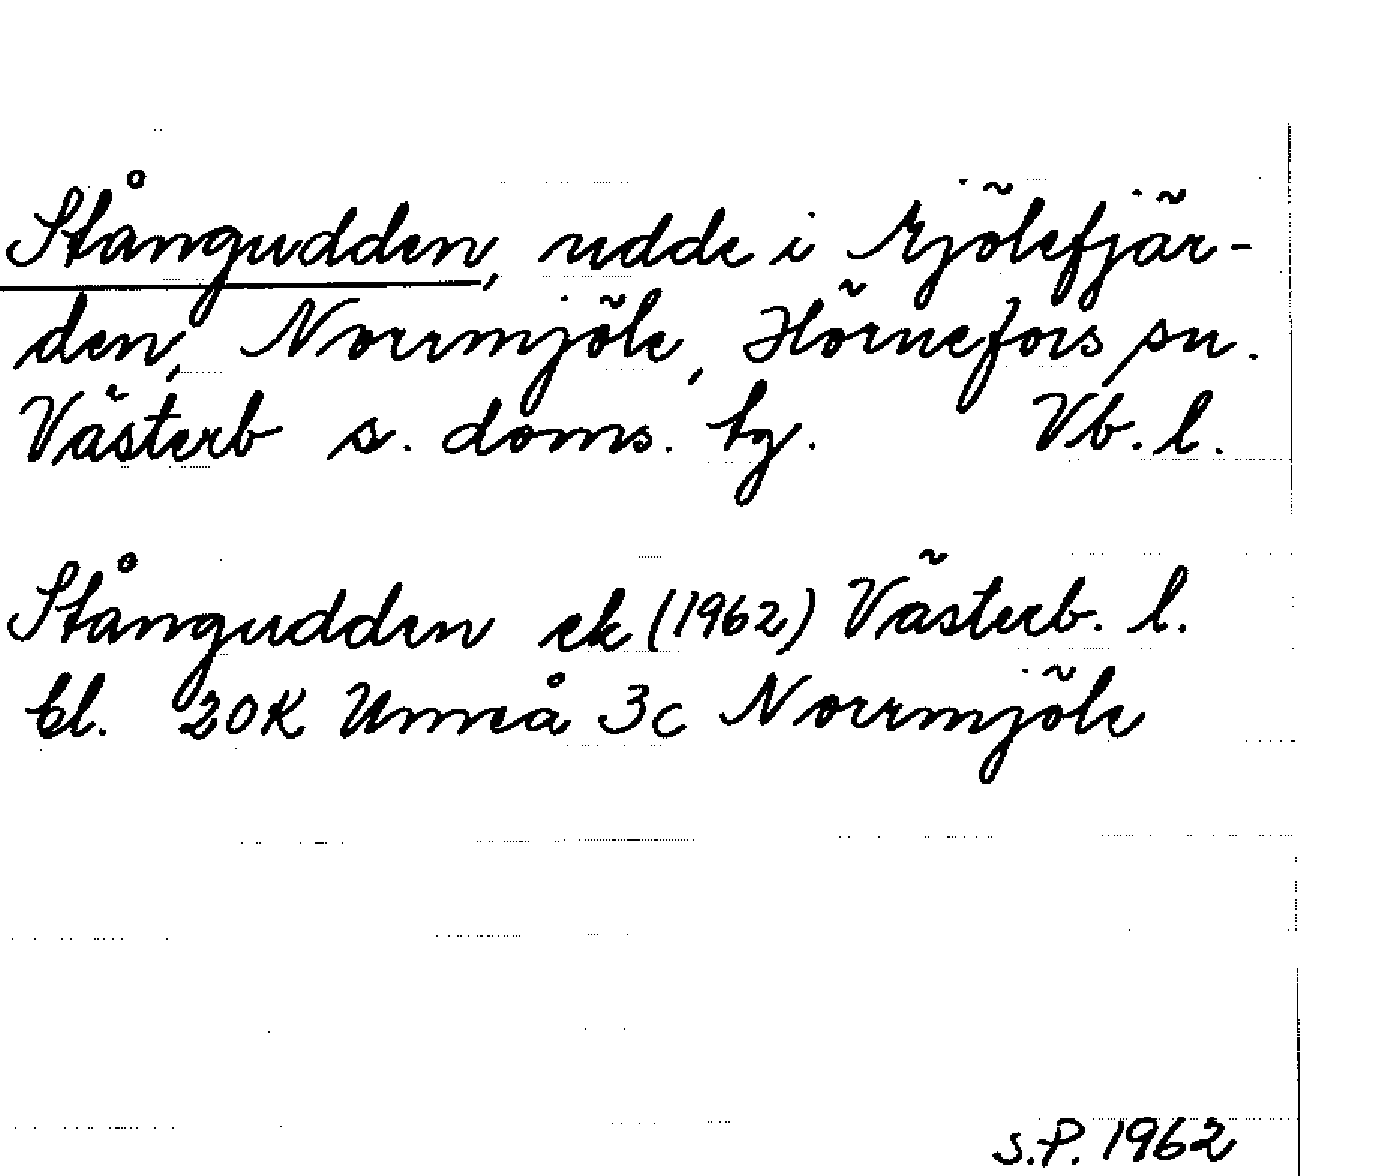 Stångudden, udde i Mjölefjär-
den, Norrmjöle, Hörnefors sn.
Västerb s. doms. tg. Vb. l.
Stångudden ek (1962) Västerb. l.
bl. 20K Umeå 3c Norrmjöle
S.P. 1962